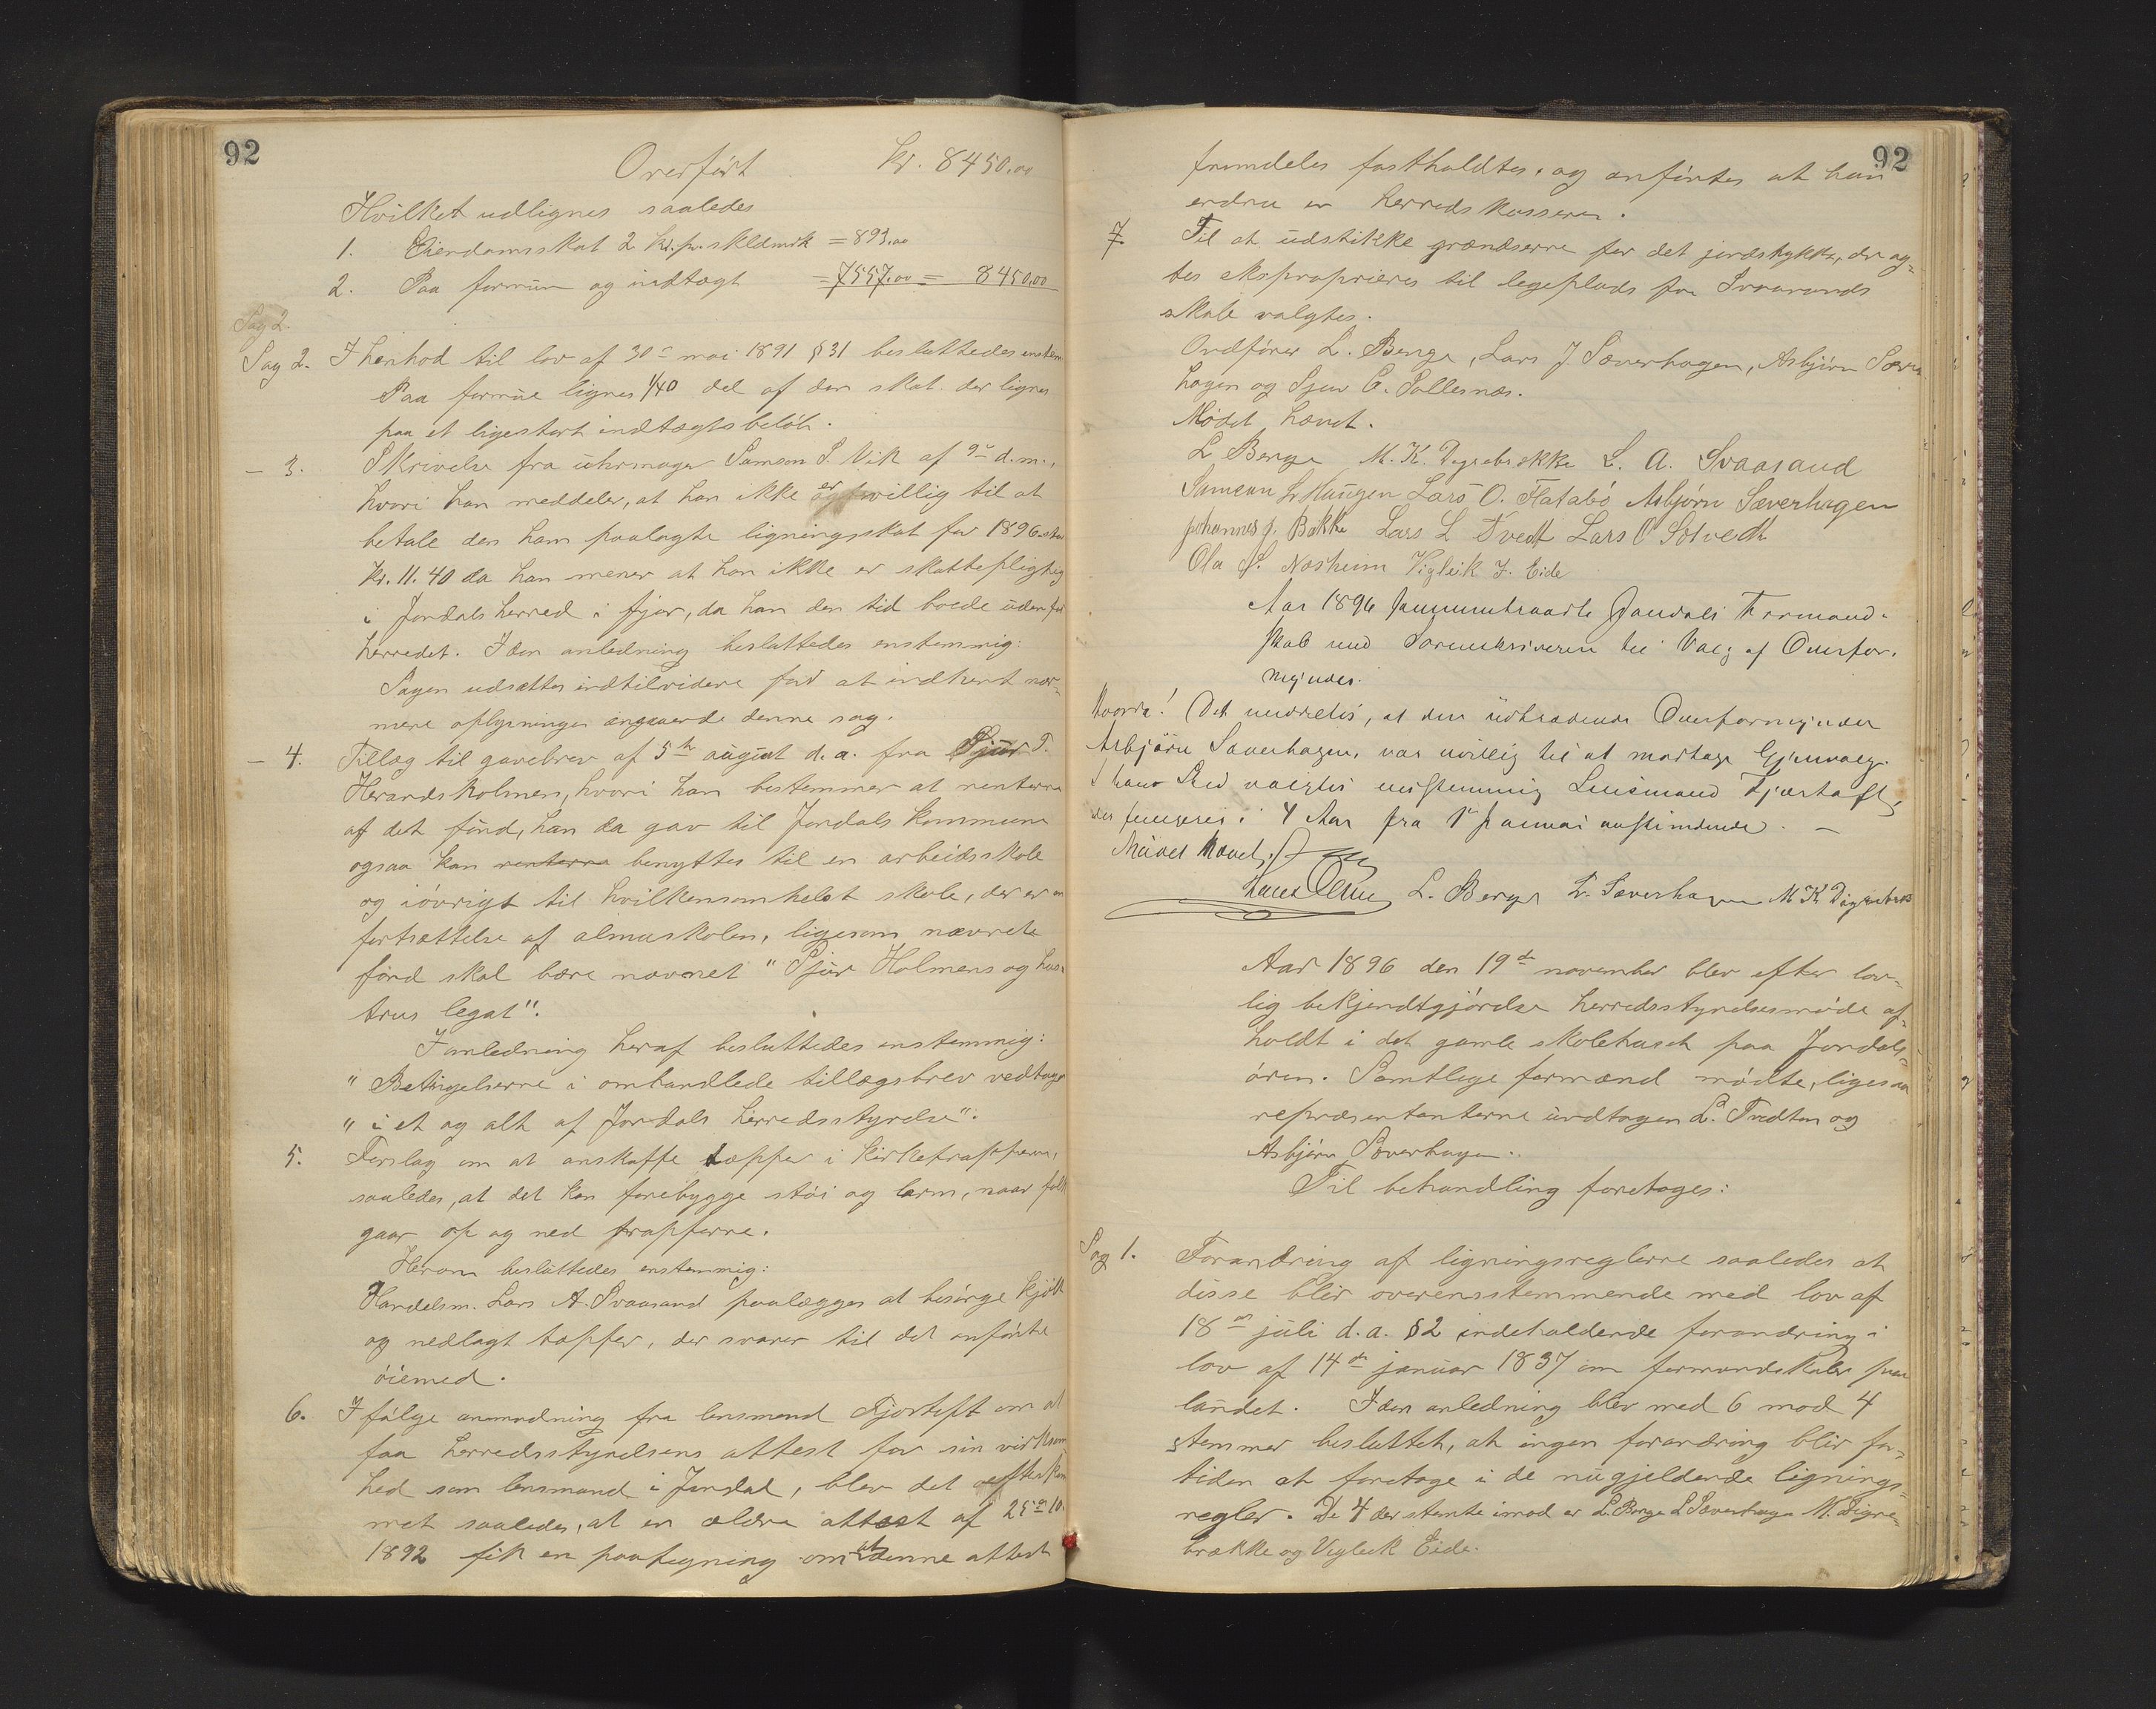 92
Overført kr. 8450.00
Hvilket udlignes saaledes
1. Eiendomsskat 2 kr. pr. skldmrk = 893.00
2. Paa formue og indtægt = 7557.00 = 8450.00
Sag 2.
Sag 2. I henhod til lov af 30te mai 1891 § 31 besluttedes enstem
Paa formue lignes 1/40 del af den skat der lignes
paa et ligestort indtægtsbeløb.
- 3. Skrivelse fra uhrmager Samson S. Vik af 9de d.m.,
hvori han meddeler, at han ikke er villig til at
betale den ham paalagte ligningsskat for 1896 stor
kr. 11.40 da han mener at han ikke er skattepligtig
i Jondals herred i fjor, da han den tid boede udenfor
herredet. I den anledning besluttedes enstemmig:
Sagen udsættes indtilvidere for at indhent nær-
mere oplysninger angaaende denne sag.
- 4. Tillæg til gavebrev af 5te august d.a. fra Sjur T.
Herandsholmen, hvori han bestemmer at renterne
af det fund, han da gav til Jondals kommune
ogsaa kan renterne benyttes til en arbeidsskole
og iøvrigt til hvilkensomhelst skole, der er en
fortsættelse af almuskolen, ligesom nævnte
fond skal bære navnet "Sjur Holmens og hus-
trus legat".
I anledning heraf besluttedes enstemmig:
" Betingelserne i omhandlede tillægsbrev vedtages
" i et og alt af Jondals herredsstyrelse".
5. Forslag om at anskaffe tæpper i kirketrapperne,
saaledes, at det kan forebygge støi og larm, naar folk
gaar op og ned trapperne.
Herom besluttedes enstemmig:
Handelsm. Lars A. Svaasand paalægges at besørge kjøbt
og nedlagt tæpper, der svarer til det anførte
øiemed.
6. I følge anmodning fra lensmand Fjortoft om at
faa herredsstyrelsens attest for sin virksom
hed som lensmand i Jondal, blev det efterkom
met saaledes, at en ældre attest af 25de 10.
1892 fik en paategning om at denne attest
92
fremdeles fastholdtes, og anførtes at han
endnu er herredskasserer.
7. Til at udstikke grændserne for det jordstykke, der ag-
tes eksproprieres til legeplads for Svaasands
skole valgtes.
Ordfører L. Berge, Lars J. Sæverhagen, Asbjørn Sæver
hagen og Sjur G. Sollesnæs.
Mødet hævet.
L Berge M. K. Digrebrekke L. A. Svaasand
Samson L Haugen Lars O. Flatabø Asbjørn Sæverhagen
Johannes J. Bakke Lars L Tvedt Lars O Solvedt
Ola S. Næsheim Vigleik J. Eide
Aar 1896 sammentraadte Jondals Formand-
skab med Sorenskriveren til Valg af Overfor-
mynder.
Hvorda! Det meddeles, at den udtrædende Overformynder
Asbjørn Sæverhagen, var uvillig til at modtage Gjenvalg.
I hans Sted valgtes enstemmig Lensmand Fjørtoft,
der fungerer i 4 Aar fra 1ste Januar anstundende. –
Mødet hævet.
L. Berge L. Sæverhagen M K Digrebrek
Aar 1896 den 19de november blev efter lov-
lig bekjendtgjørelse herredsstyrelsesmøde af-
holdt i det gamle skolehuset paa Jondals-
øren. Samtlige formænd mødte, ligesaa
repræsentanterne undtagen L. Tredten og
Asbjørn Sæverhagen.
Til behandling foretages:
Sag 1. Forandring af ligningsreglerne saaledes at
disse blir overensstemmende med lov af
18de juli d.a. §2 indeholdende forandring i
lov af 14de januar 1837 om formandskaber paa
landet. I den anledning blev med 6 mod 4
stemmer besluttet, at ingen forandring blir for-
tiden at foretage i de nugjeldende lignings-
regler. De 4 der stemte imod er L. Berge L Sæverhagen M. Digre-
brække og Vigleik Eide.